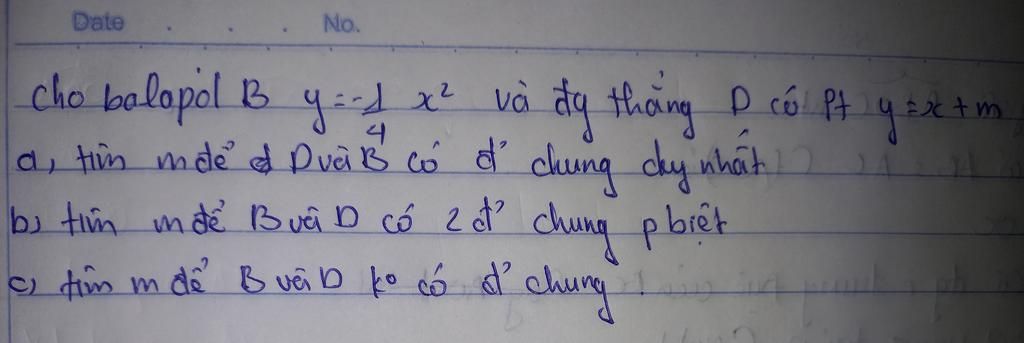 Date . . . No.
Cho balapol B y = -1/4 x² và đg thẳng D có Pt y = x + m
a, tìm m để D với B có đ' chung duy nhất
b) tìm m để B với D có 2 đ' chung p biệt
c) tìm m để B với D ko có đ' chung.